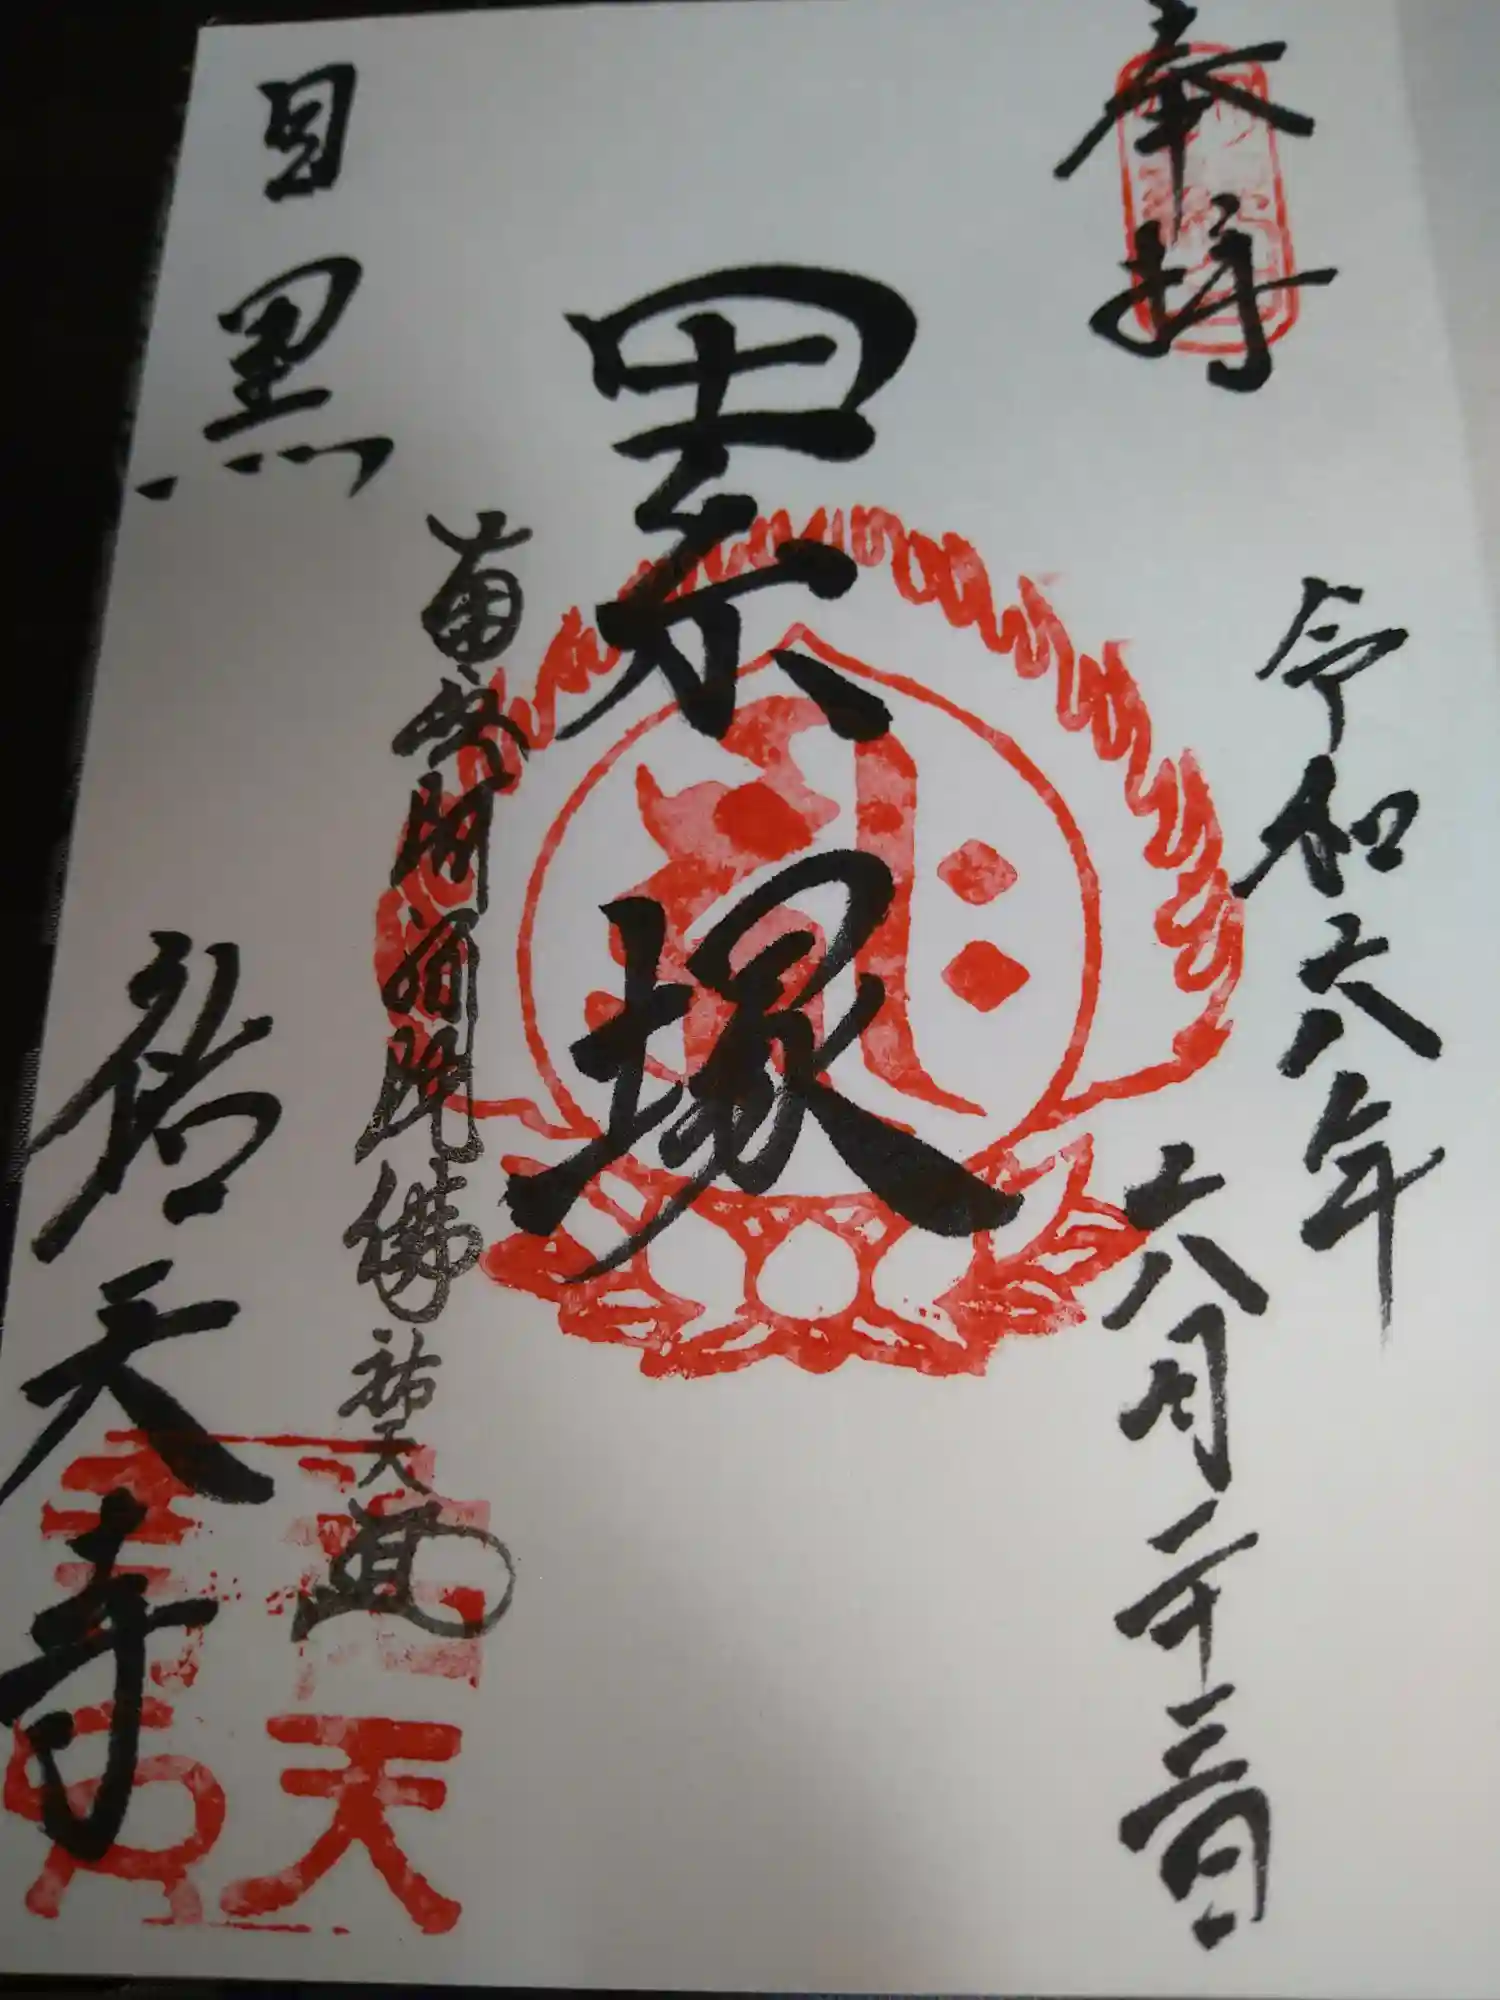 奉拝
令和六年
六月二十三日
累塚
南無阿弥陀佛
祐天
目黒
祐天寺